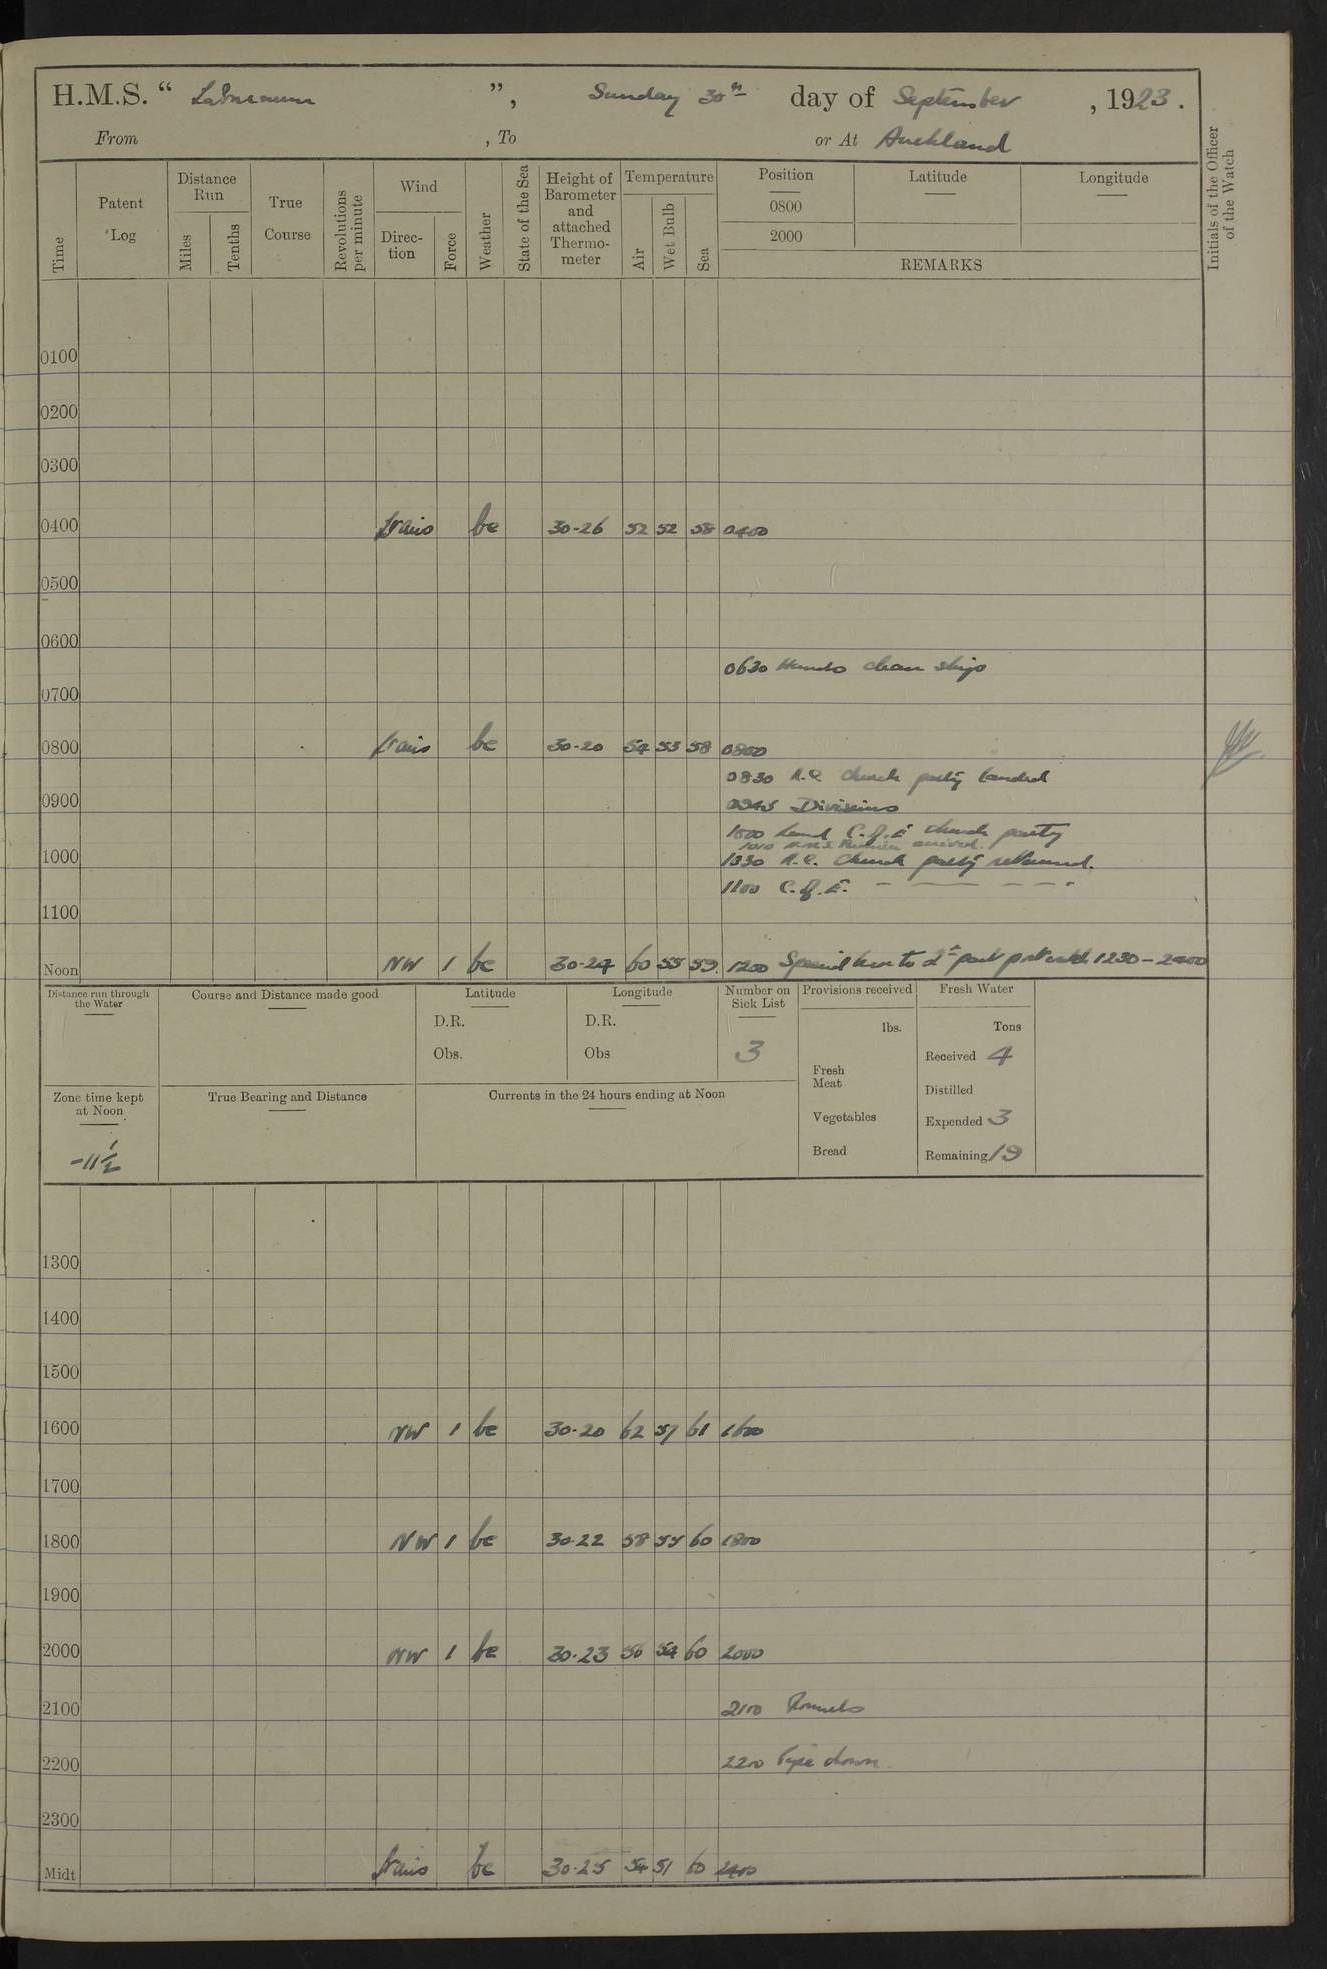 H.M.S. “ Laburnum ”, Sunday 30th day of September, 1923.
From , To or At Auckland
Time
Patent Log
Distance Run
Miles
Tenths
True Course
Revolutions per minute
Wind
Direction
Force
Weather
State of the Sea
Height of Barometer and attached Thermometer
Temperature
Air
Wet Bulb
Sea
Position
0800
2000
Latitude
Longitude
REMARKS
Initials of the Officer of the Watch
0100
0200
0300
0400 bc 30-26 52 52 58 0400
0500
0600
0630 Hands clean ship
0700
0800 bc 30-20 54 53 58 0800
0830 R.C. church party landed
0900
0945 Divisions
1000 Land C.of.E church party
1010 H.M.S. arrived.
1000
1030 R.C. church party returned.
1100 C.of.E. - — - - -
1100
Noon NW 1 bc 30-24 60 55 59 1200 Special leave to 2nd part port watch 1230 - 2400
Distance run through the Water
Course and Distance made good
Latitude
D.R.
Obs.
Longitude
D.R.
Obs
Number on Sick List
3
Provisions received
lbs.
Fresh Meat
Vegetables
Bread
Fresh Water
Tons
Received 4
Distilled
Expended 3
Remaining 19
Zone time kept at Noon
-11½
True Bearing and Distance
Currents in the 24 hours ending at Noon
1300
1400
1500
1600 NW 1 bc 30-20 62 57 61 1600
1700
1800 NW 1 bc 30-22 58 55 60 1800
1900
2000 NW 1 bc 30-23 56 54 60 2000
2100 2100 Rounds
2200 2200 Pipe down.
2300
Midt bc 30-25 54 51 60 2400